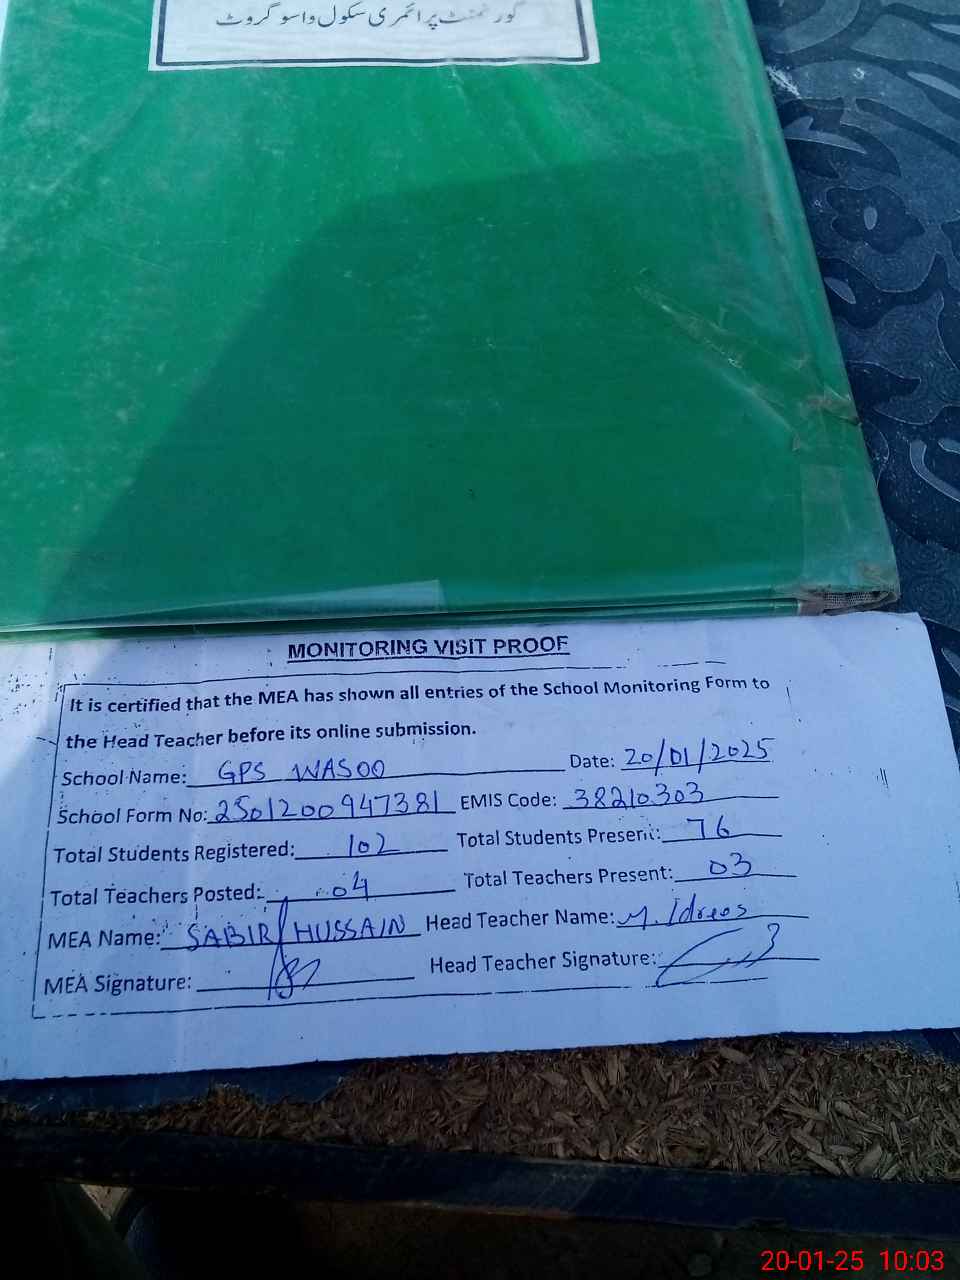 گورنمنٹ پرائمری سکول واسو گروٹ
MONITORING VISIT PROOF
It is certified that the MEA has shown all entries of the School Monitoring Form to
the Head Teacher before its online submission.
School Name: GPS WASOO Date: 20/01/2025
School Form No: 2501200947381 EMIS Code: 38210303
Total Students Registered: 102 Total Students Present: 76
Total Teachers Posted: 04 Total Teachers Present: 03
MEA Name: SABIR HUSSAIN Head Teacher Name: M. Idrees
MEA Signature: Head Teacher Signature:
20-01-25 10:03